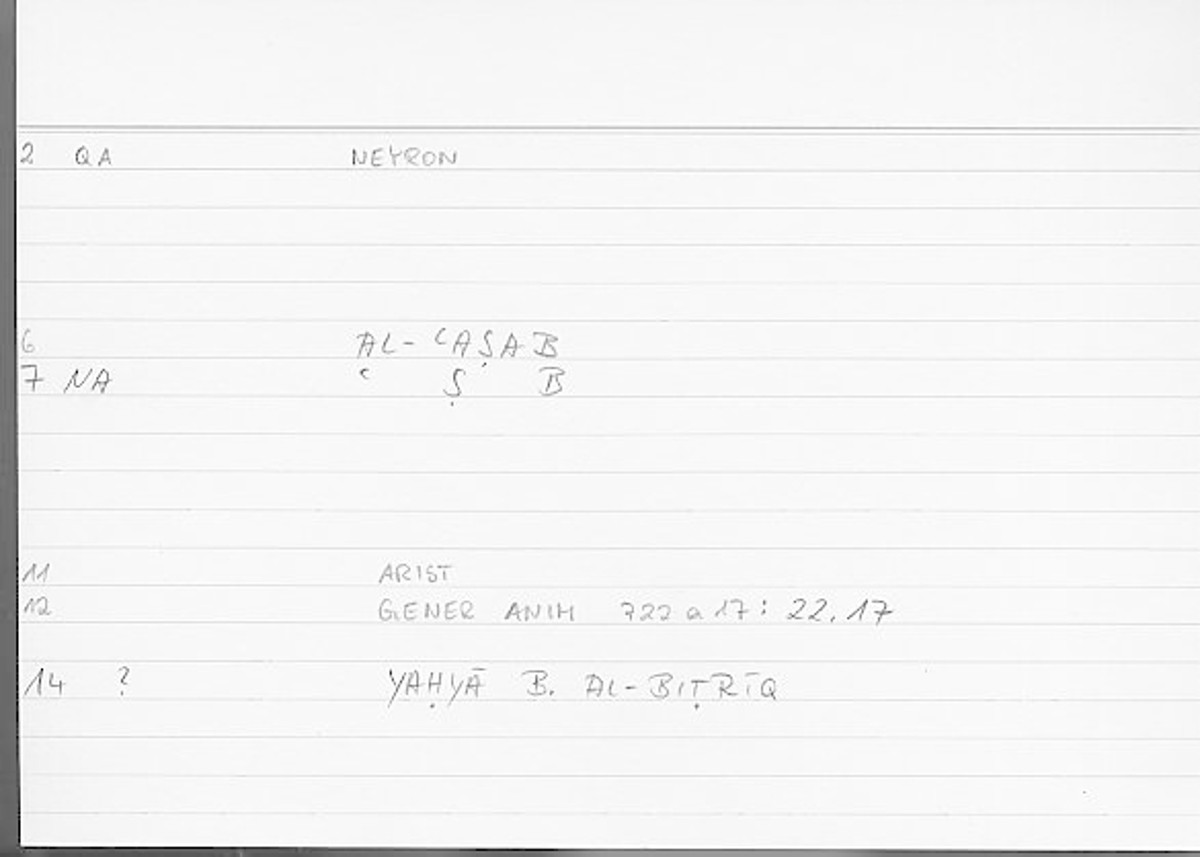 2 QA NEYRON
6 AL-ʿAṢAB
7 NA ʿ Ṣ B
11 ARIST
12 GENER ANIM 722 a 17: 22,17
14 ? YAḤYĀ B. AL-BIṬRĪQ